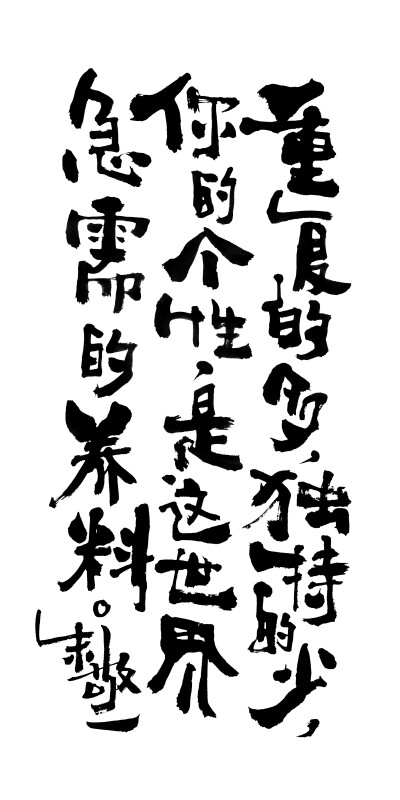 重复的多，独特的少，
你的个性，是这世界
急需的养料。